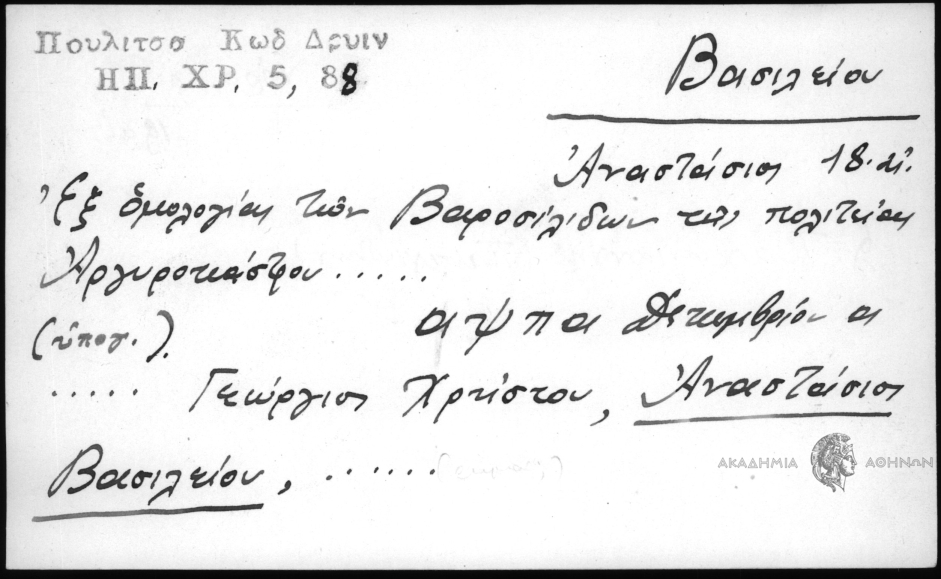 Πουλιτσα Κωδ Δρυιν
ΗΠ. ΧΡ. 5, 88
Βασιλείου
Ἀναστάσιος 18. αἰ.
Ἐξ ὁμολογίας τῶν Βαροσιλιδων τῆς πολιτείας
Ἀργυροκάστρου . . . . .
αψπα Δεκεμβρίου α
(ὑπογ.).
. . . . . Γεώργιος Χρήστου, Ἀναστάσιος
Βασιλείου, . . . . . .
ΑΚΑΔΗΜΙΑ ΑΘΗΝΩΝ